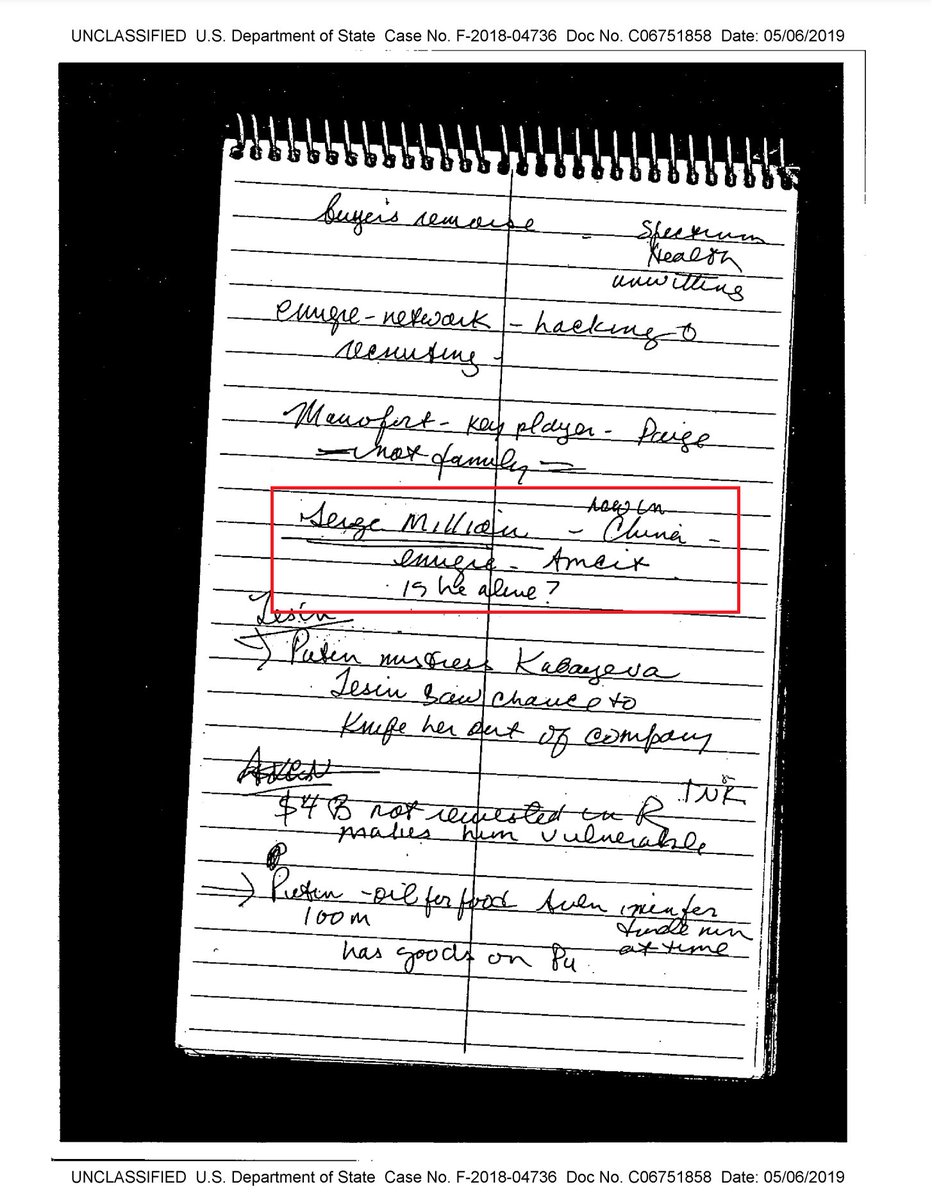 UNCLASSIFIED U.S. Department of State Case No. F-2018-04736 Doc No. C06751858 Date: 05/06/2019
buyer's remorse - Spectrum
Health
unwitting
emigre-network - hacking
recruiting -
Manofort - key player - Paige
- not family -
now in
Serge Million - China -
emigre - Amcit
is he alive?
Lesin
→ Putin mistress Kabayeva
Lesin saw chance to
Knife her out of company
INR
$4 B not requested in R
makes him vulnerable
→ Putin - oil for food
100m
trade min
at time
has goods on Pu
UNCLASSIFIED U.S. Department of State Case No. F-2018-04736 Doc No. C06751858 Date: 05/06/2019